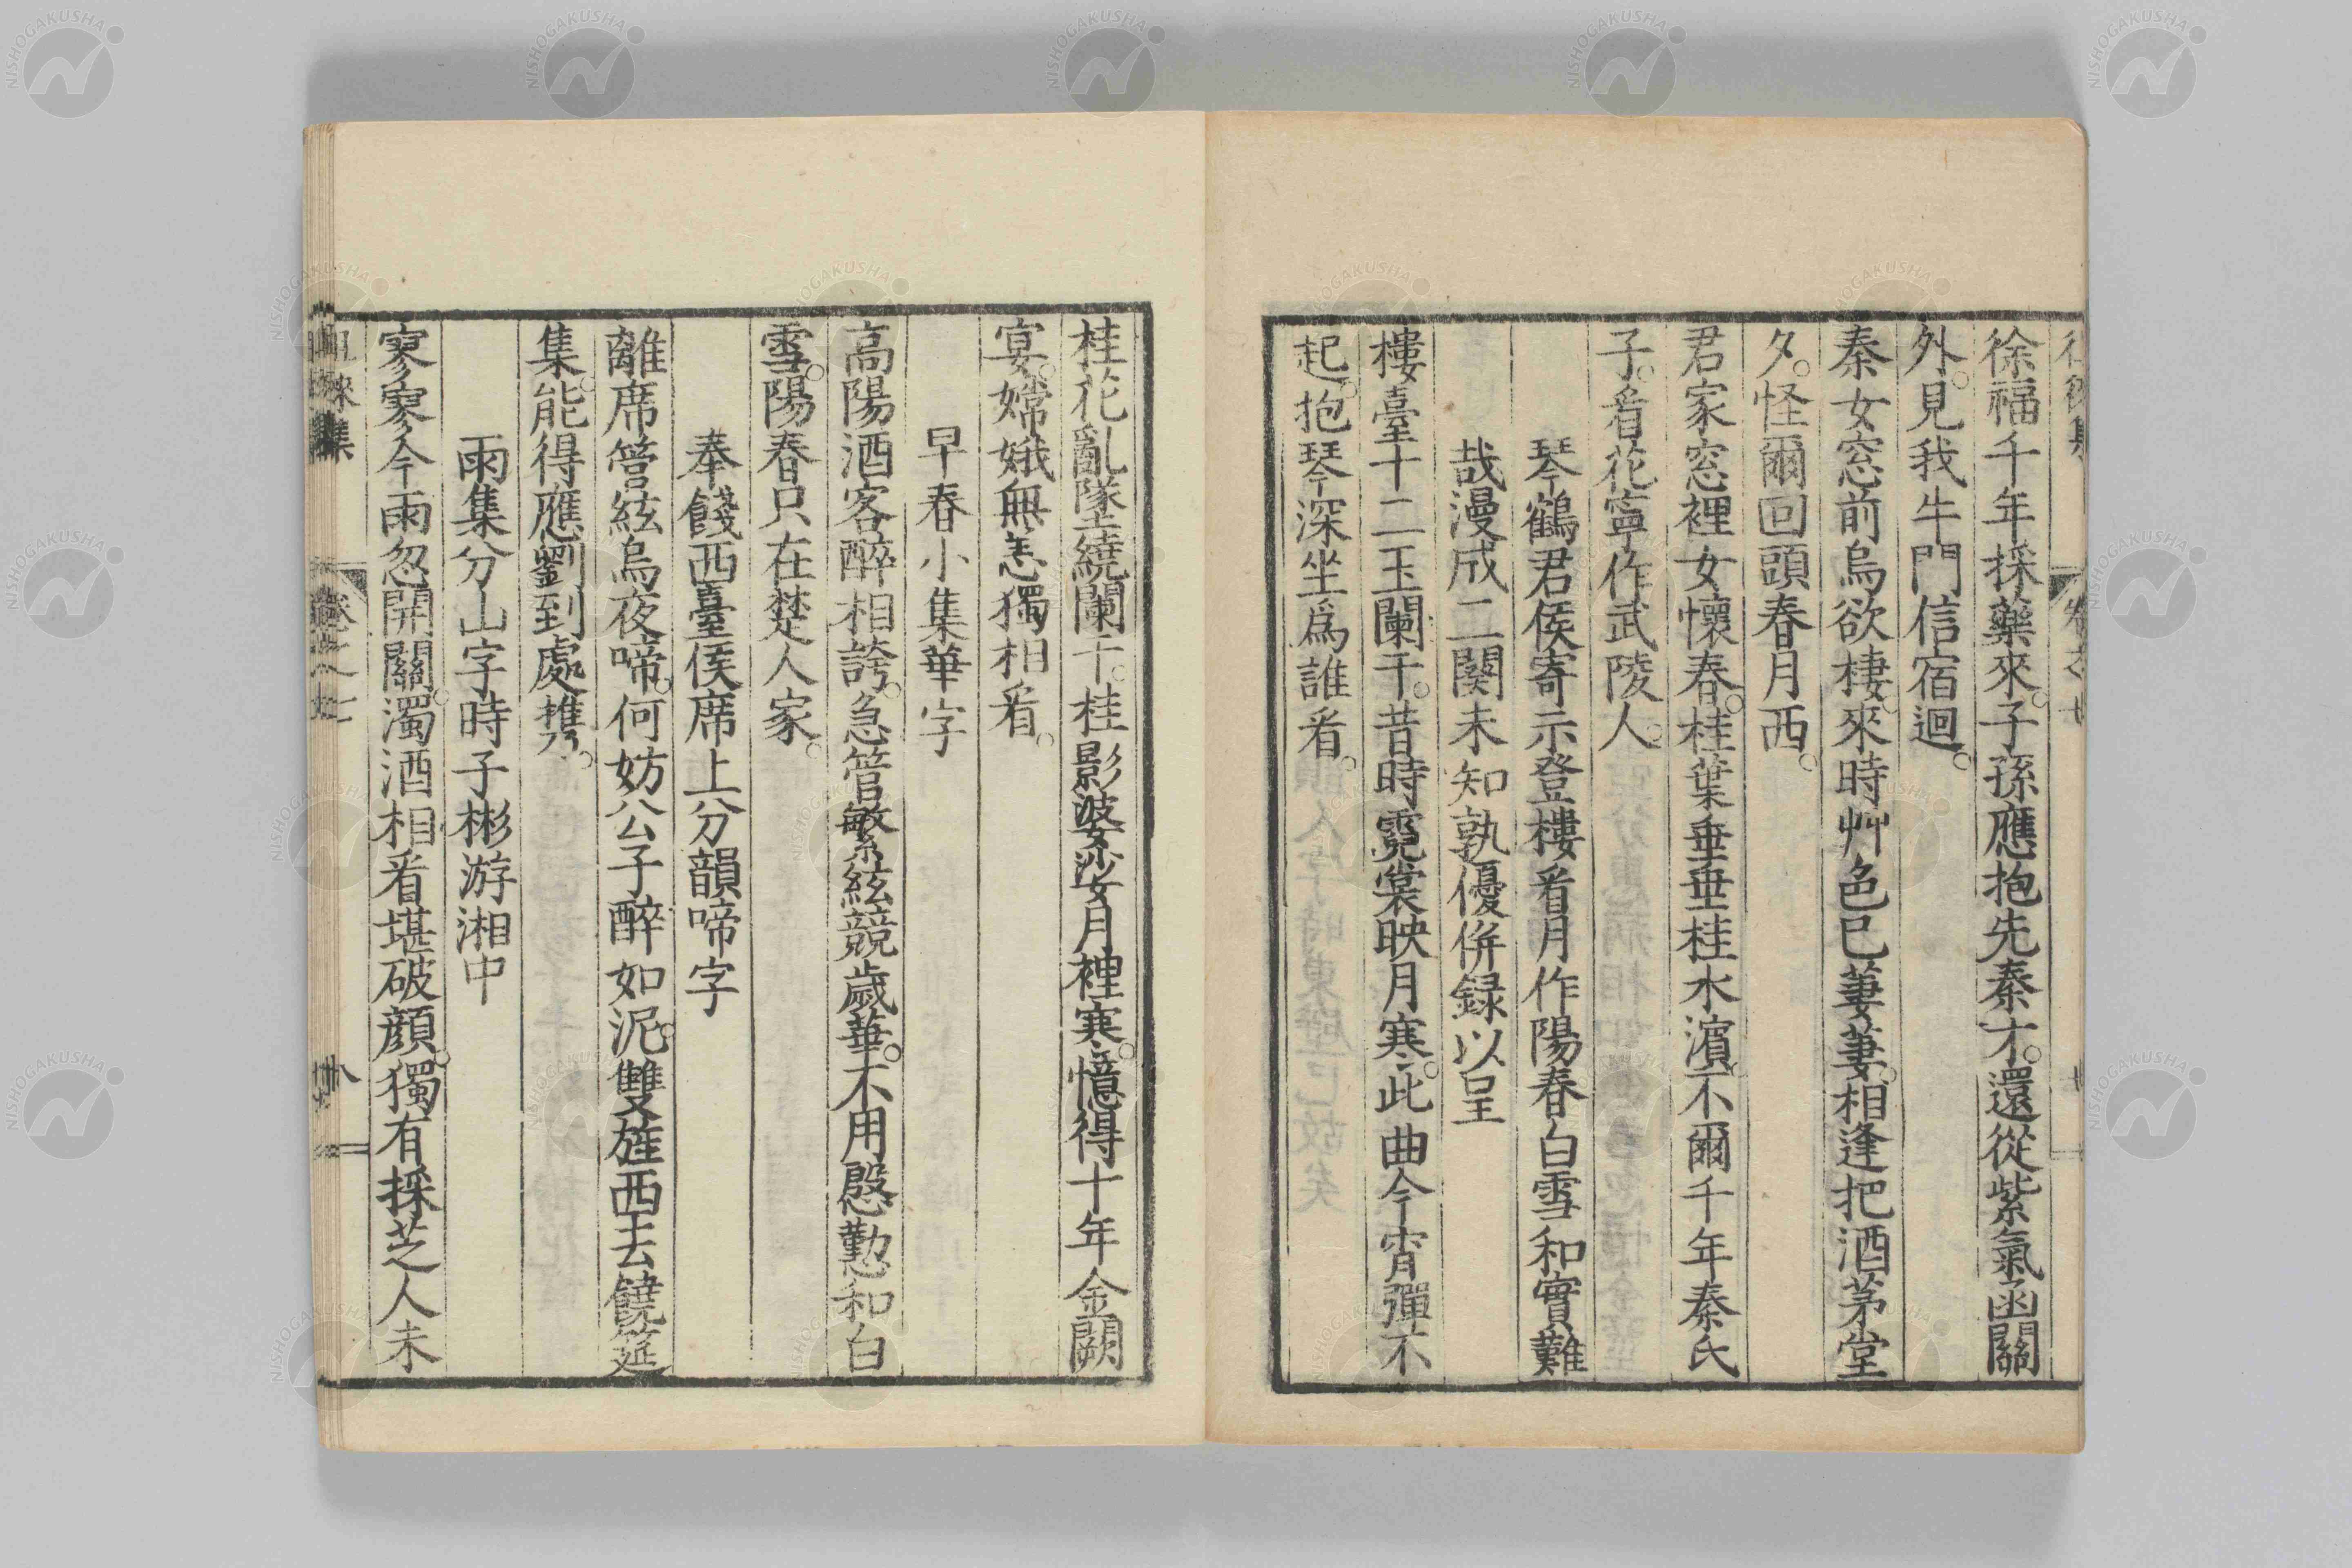 徐福千年採藥來。子孫應抱先秦才。還從紫氣函關
外。見我牛門信宿迴。
秦女窓前烏欲棲。來時艸色已萋萋。相逢把酒茅堂
夕。怪爾回頭春月西。
君家窓裡女懷春。桂葉垂垂桂水濱。不爾千年秦氏
子。看花寧作武陵人。
琴鶴君侯寄示登樓看月作陽春白雪和實難
哉漫成二闋未知孰優併録以呈
樓臺十二玉闌干。昔時霓裳映月寒。此曲今宵彈不
起。抱琴深坐爲誰看。
桂花亂墜繞闌干。桂影婆娑月裡寒。憶得十年金闕
宴。嫦娥無恙獨相看。
早春小集華字
高陽酒客醉相誇。急管繁絃競歲華。不用慇懃和白
雪。陽春只在楚人家。
奉餞西臺侯席上分韻啼字
離席管絃烏夜啼。何妨公子醉如泥。雙旌西去饒筵
集。能得應劉到處攜。
雨集分山字時子彬游湘中
寥寥今雨忽開關。濁酒相看堪破顔。獨有採芝人未
徂徠集
卷之七
八
NISHOGAKUSHA